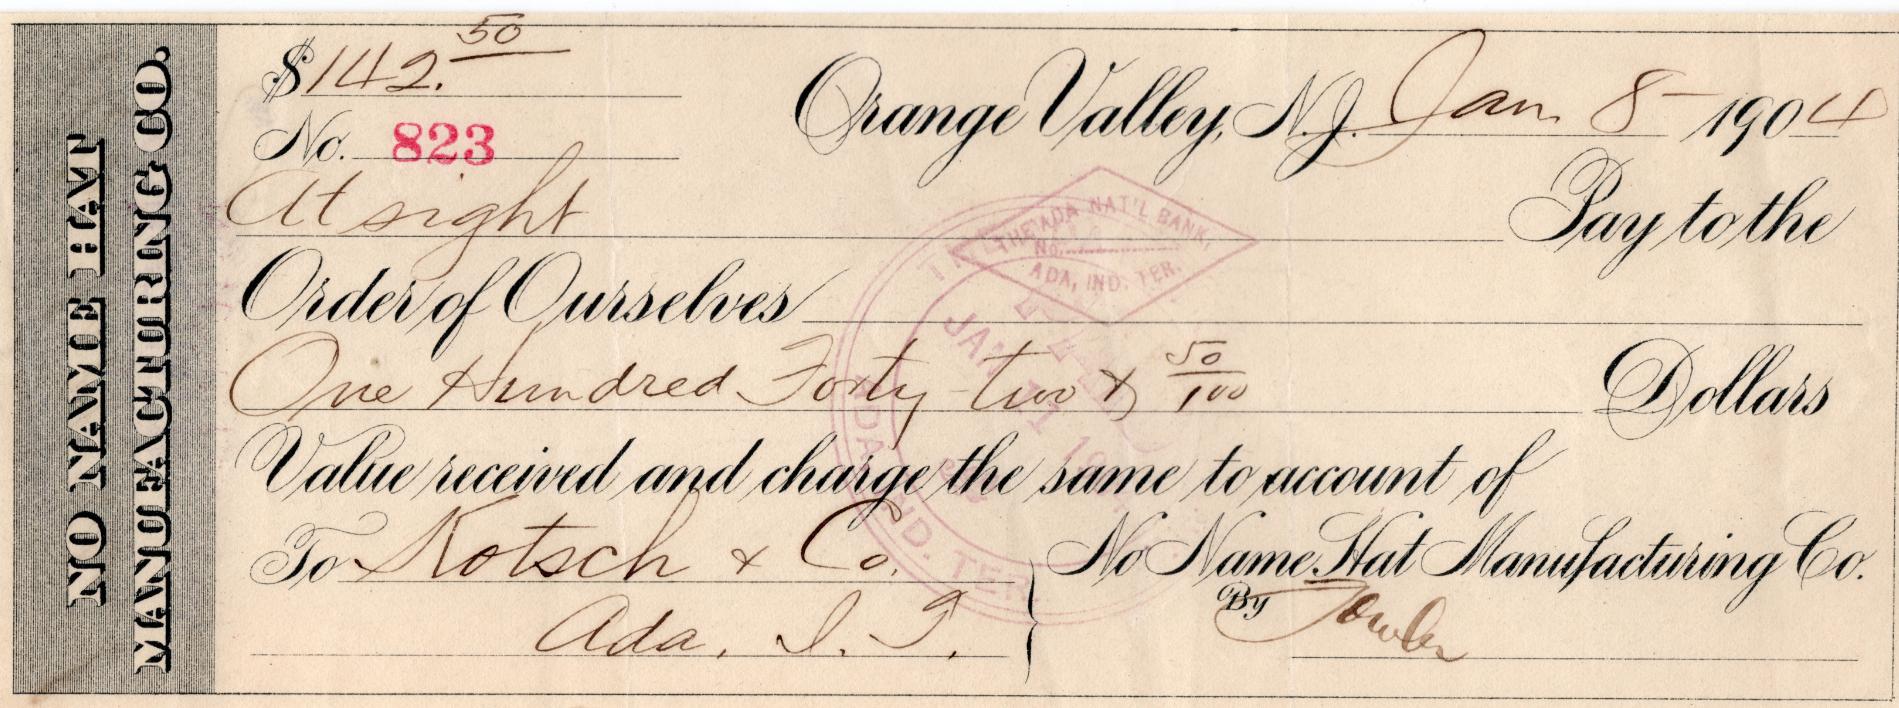 NO NAME HAT
MANUFACTURING CO.
$142.50
Orange Valley, N.J. Jan. 8 - 1904
No. 823
At sight Pay to the
Order of Ourselves
One Hundred Forty-two & 50/100 Dollars
Value received and charge the same to account of
To Kotsch & Co.
Ada, I. T.
No Name Hat Manufacturing Co.
By
THE ADA NAT'L BANK,
No.
ADA, IND. TER.
JAN 11
ADA, IND. TER.